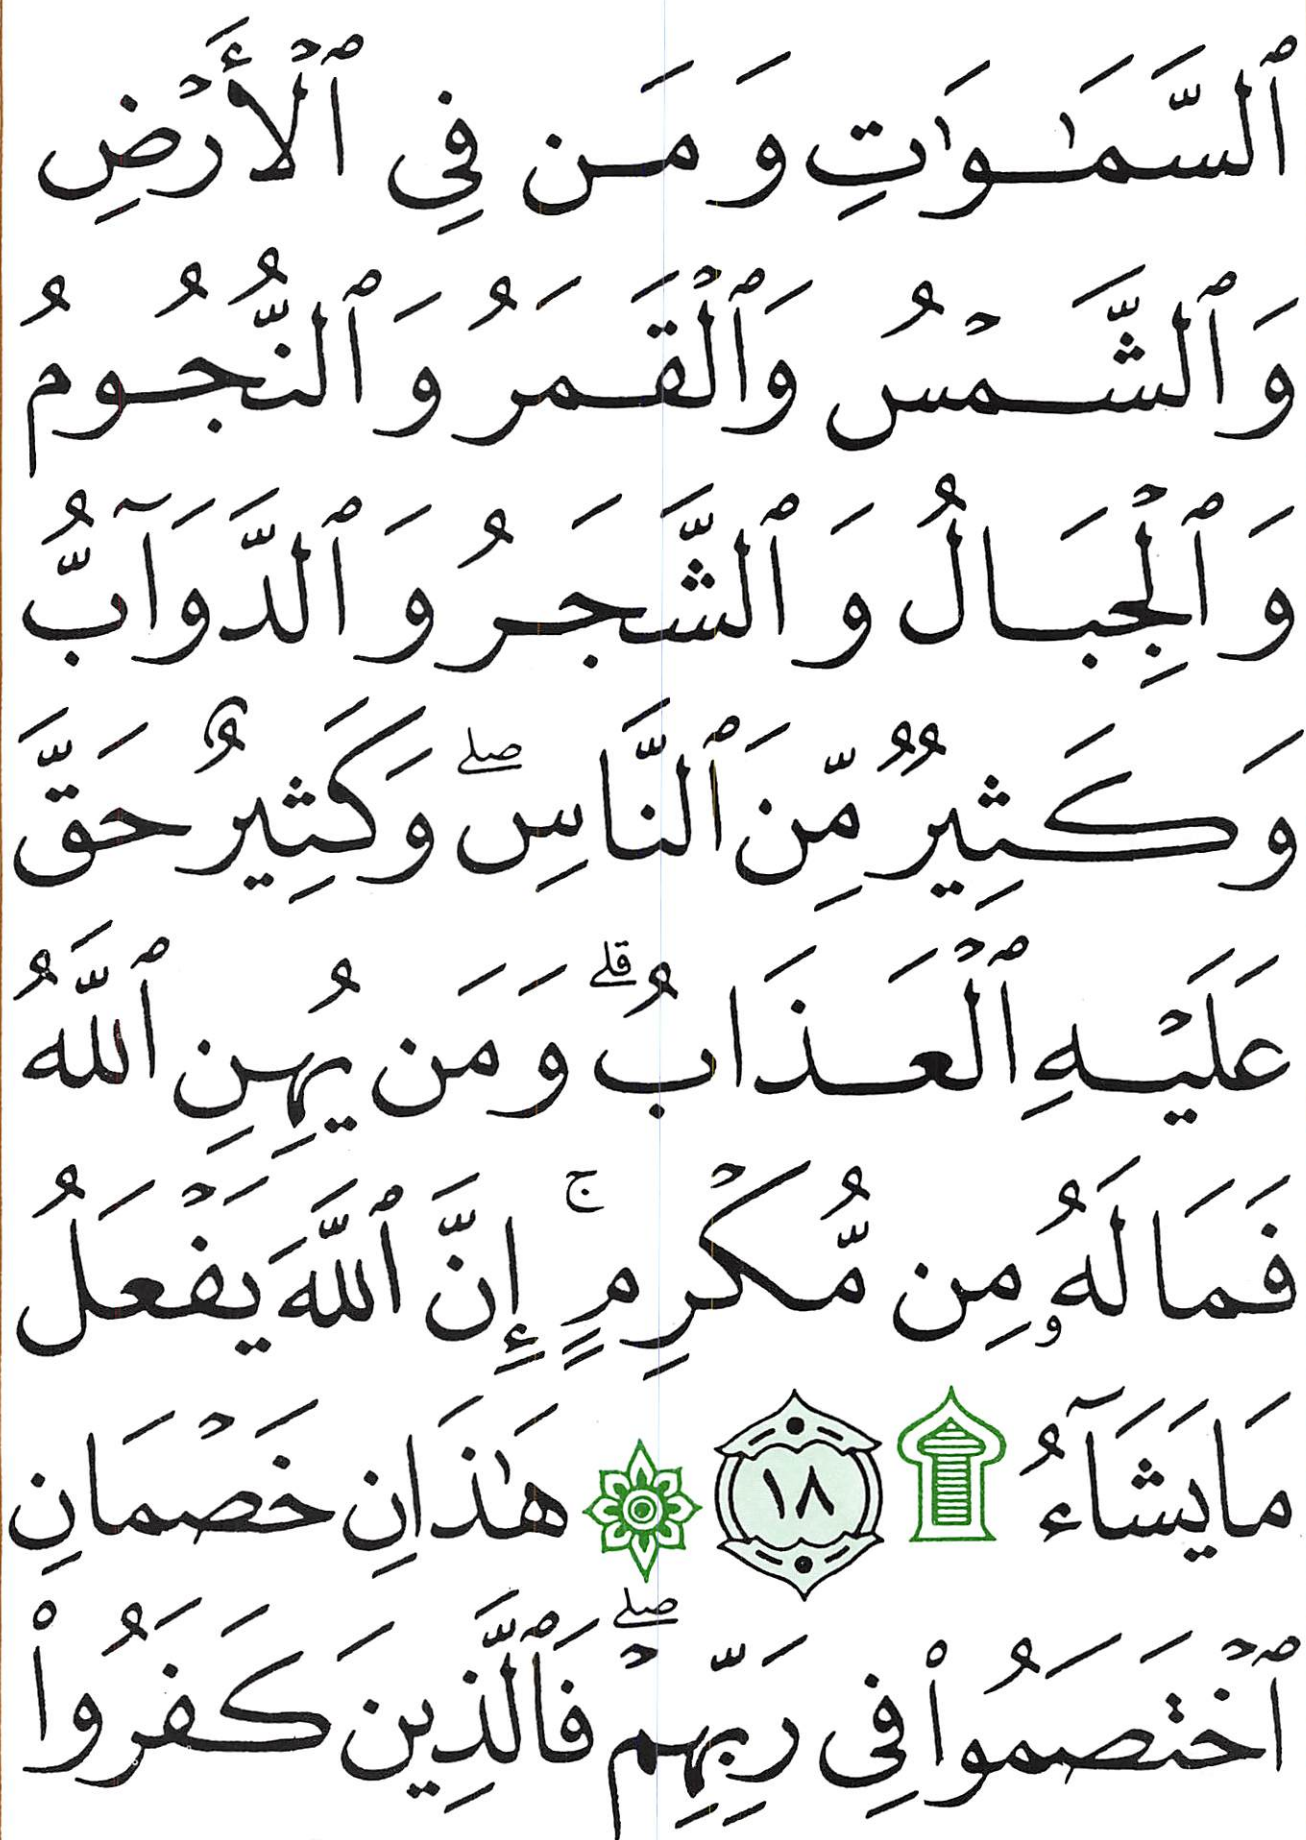 ٱلسَّمَٰوَٰتِ وَمَن فِى ٱلْأَرْضِ
وَٱلشَّمْسُ وَٱلْقَمَرُ وَٱلنُّجُومُ
وَٱلْجِبَالُ وَٱلشَّجَرُ وَٱلدَّوَآبُّ
وَكَثِيرٌ مِّنَ ٱلنَّاسِ ۖ وَكَثِيرٌ حَقَّ
عَلَيْهِ ٱلْعَذَابُ ۗ وَمَن يُهِنِ ٱللَّهُ
فَمَا لَهُۥ مِن مُّكْرِمٍ ۚ إِنَّ ٱللَّهَ يَفْعَلُ
مَا يَشَآءُ ۩ ١٨ ۞ هَٰذَانِ خَصْمَانِ
ٱخْتَصَمُوا۟ فِى رَبِّهِمْ ۖ فَٱلَّذِينَ كَفَرُوا۟